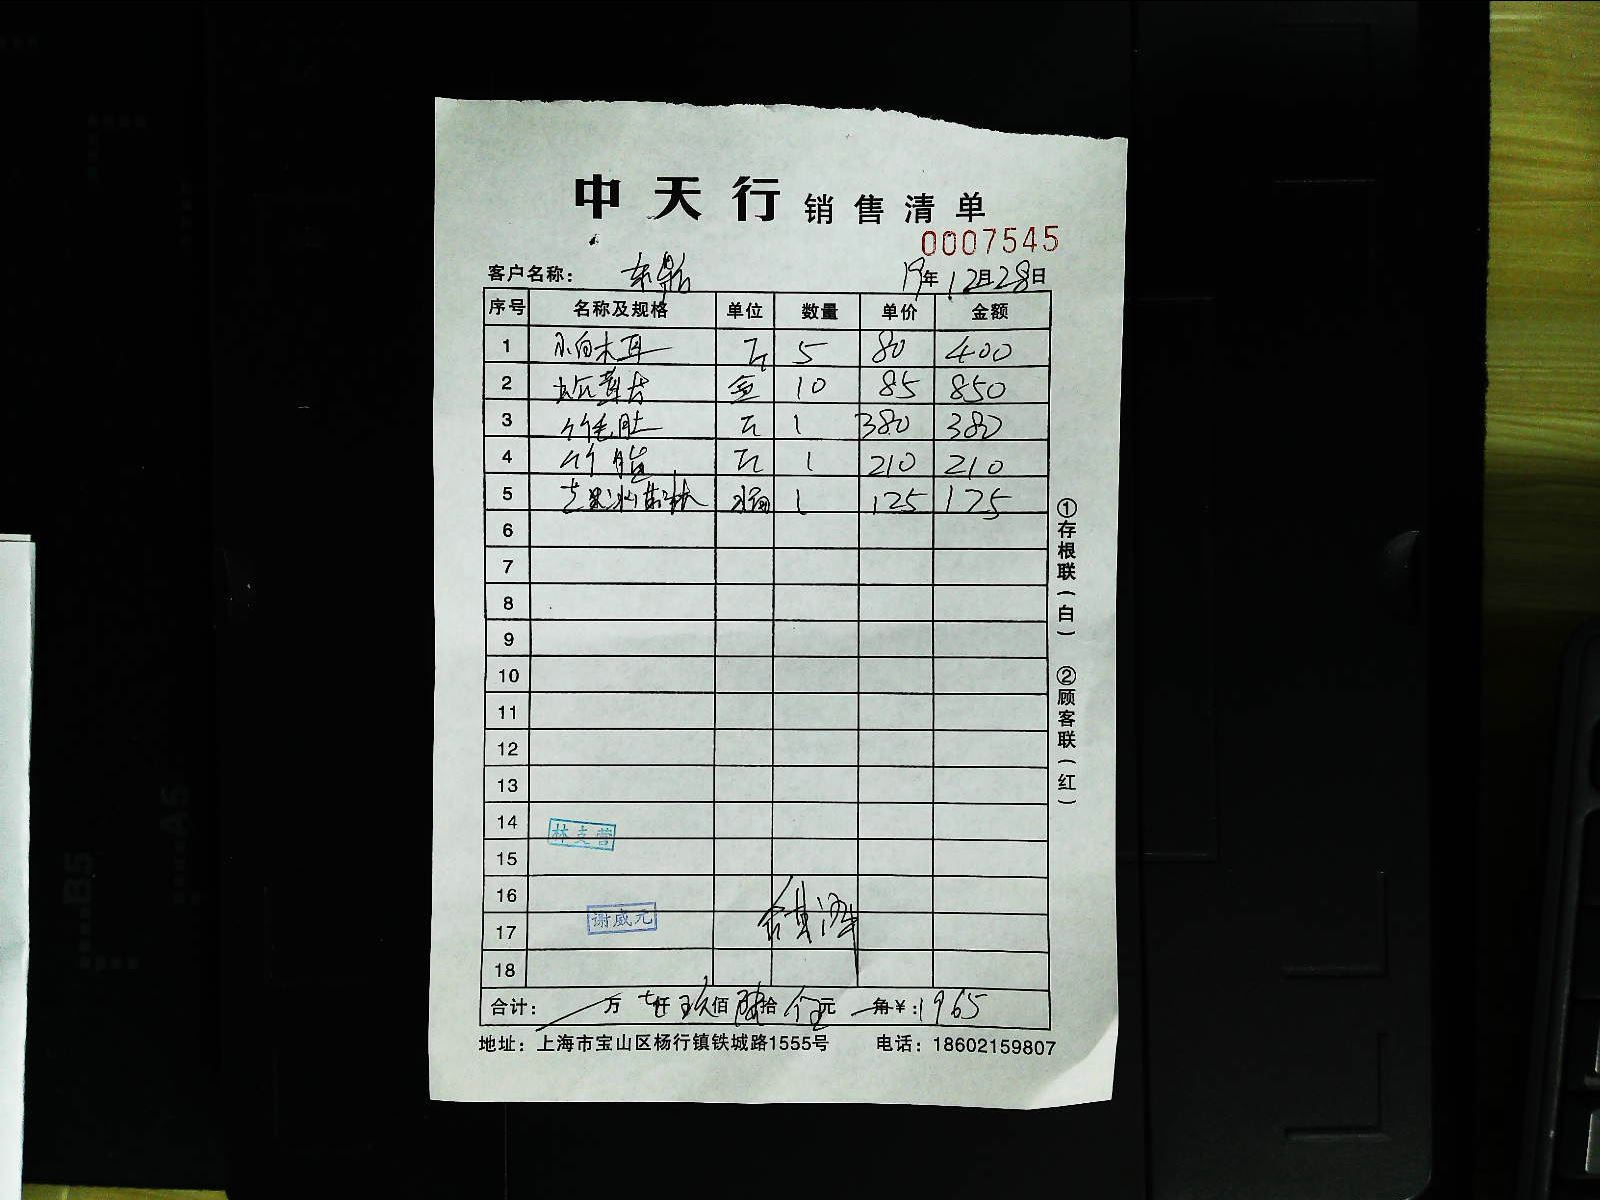 中天行 销售清单
0007545
客户名称： 东船 19年12月28日
序号 名称及规格 单位 数量 单价 金额
1 小白木耳 斤 5 80 400
2 盒 10 85 850
3 竹毛肚 斤 1 380 380
4 竹 斤 1 210 210
5 1 125 125
6
7
8
9
10
11
12
13
14 林支营
15
16
17 谢威元
18
合计： 万 仟 玖佰 陆拾 伍元 角 ¥：1965
地址：上海市宝山区杨行镇铁城路1555号 电话：18602159807
①存根联（白）
②顾客联（红）
B5
A5